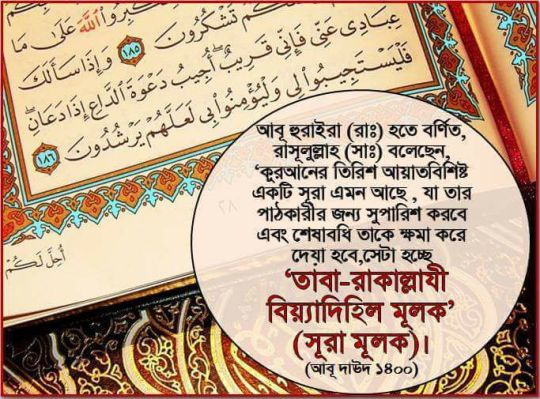 عِبَادِى عَنِّى فَإِنِّى قَرِيبٌ أُجِيبُ دَعْوَةَ الدَّاعِ إِذَا دَعَانِ
تَشْكُرُونَ ١٨٥ وَإِذَا سَأَلَكَ
اللَّهَ عَلَىٰ مَا
فَلْيَسْتَجِيبُوا لِى وَلْيُؤْمِنُوا بِى لَعَلَّهُمْ يَرْشُدُونَ ١٨٦
أُحِلَّ لَكُمْ
আবূ হুরাইরা (রাঃ) হতে বর্ণিত,
রাসূলুল্লাহ (সাঃ) বলেছেন,
‘কুরআনের তিরিশ আয়াতবিশিষ্ট
একটি সূরা এমন আছে , যা তার
পাঠকারীর জন্য সুপারিশ করবে
এবং শেষাবধি তাকে ক্ষমা করে
দেয়া হবে,সেটা হচ্ছে
‘তাবা-রাকাল্লাযী
বিয়্যাদিহিল মূলক’
(সূরা মূলক)।
(আবূ দাউদ ১৪০০)